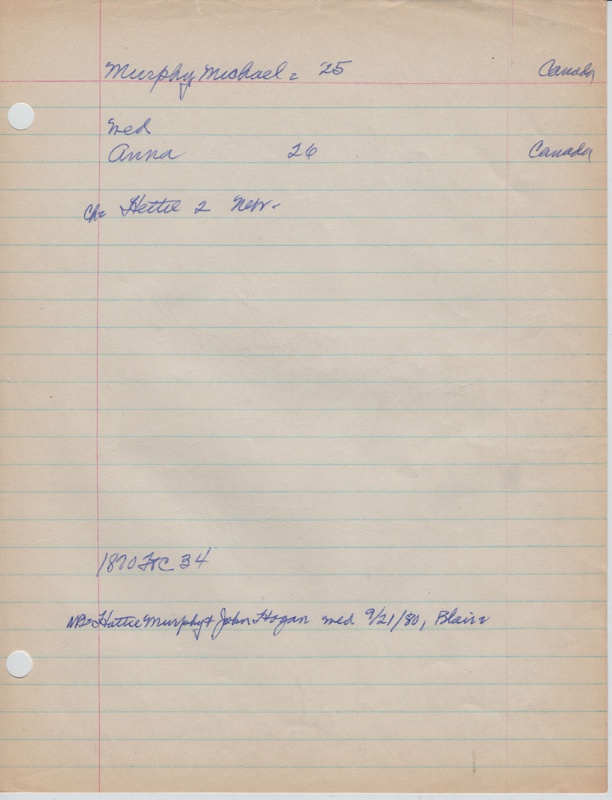 Murphy Michael = 25 Canada
med
Anna 26 Canada
ch= Hettie 2 Nebr.
1870 FtC 34
NB= Hattie Murphy & John Hogan med 9/21/80, Blair